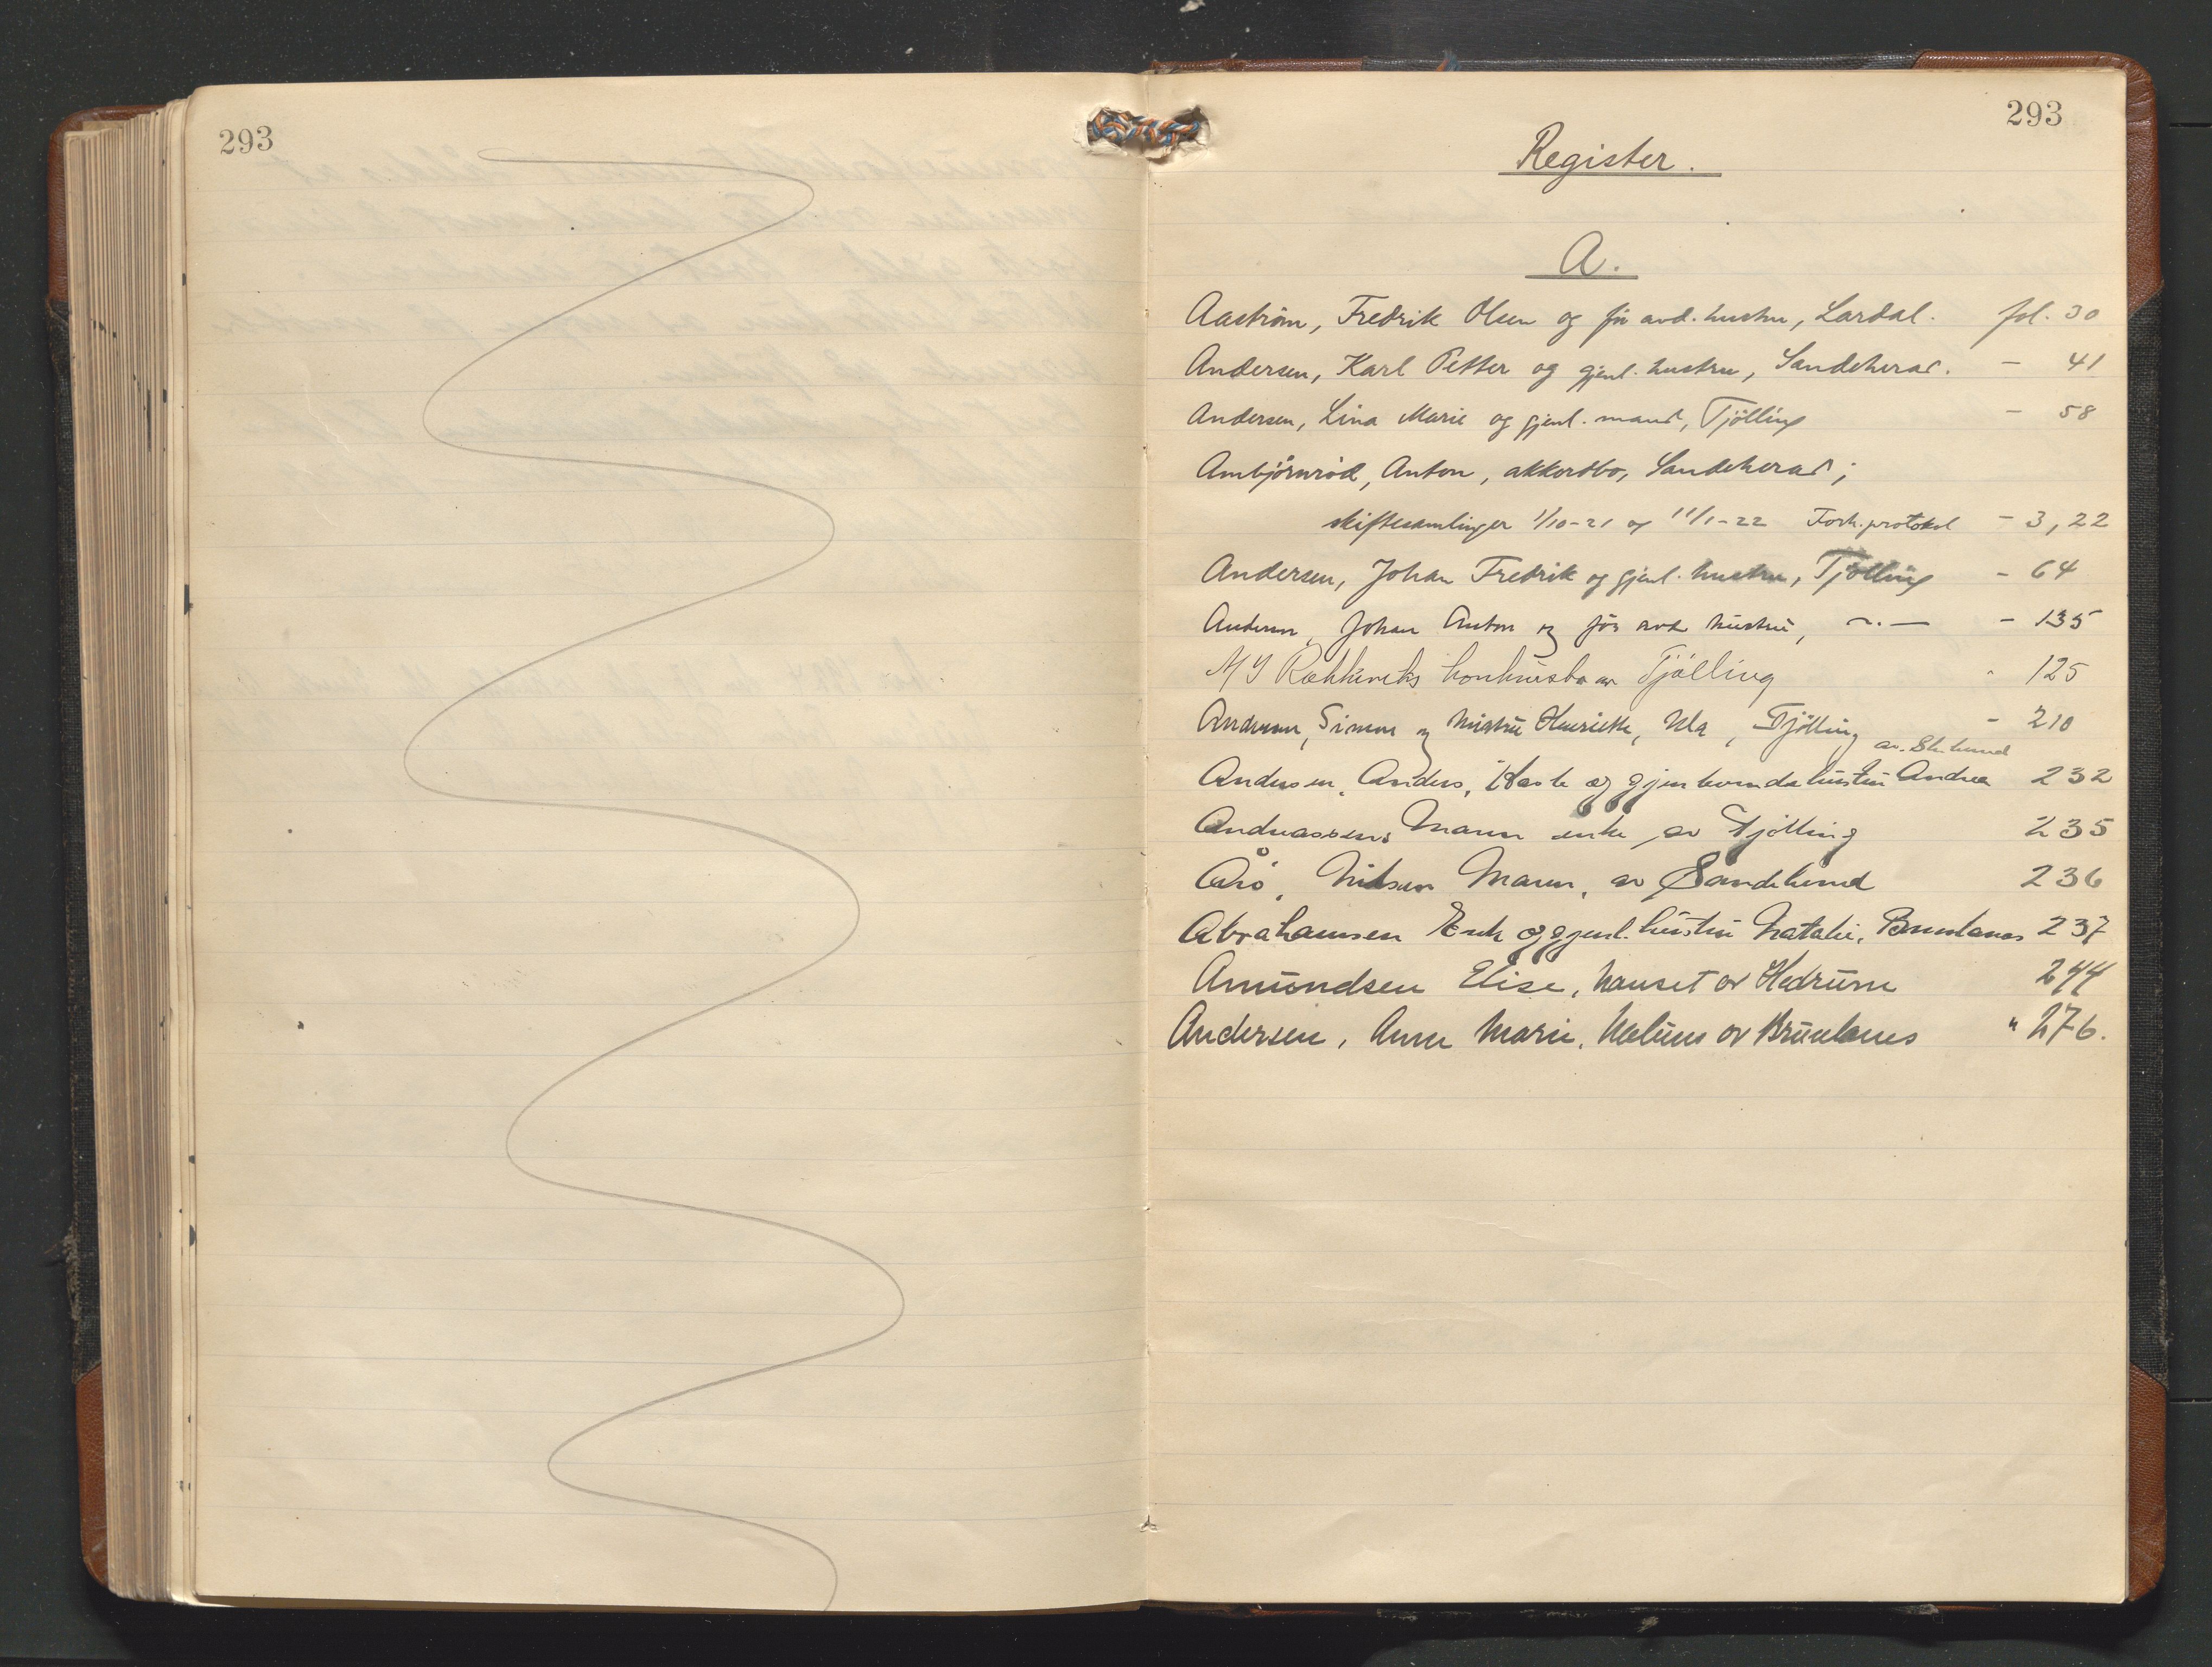 293
293
Register.
A.
Aaström, Fredrik Olsen og för avd. hustru, Lardal. fol. 30
Andersen, Karl Petter og gjenl. hustru, Sandeherad. - 41
Andersen, Lina Marie og gjenl. mand, Tjölling - 58
Ambjörnröd, Anton, akkordbo, Sandeherad;
skiftesamlinger 1/10-21 og 11/1-22 Forh. protokol - 3, 22
Andersen, Johan Fredrik og gjenl. hustru, Tjölling - 64
Andersen, Johan Anton og för avd hustru, -"- - 135
A/S konkursbo av Tjölling " 125
Andersen, Simon og hustru Henriette, Ula, Tjölling - 210
av Sandeherred
Andersen, Anders, og gjenlevende hustru Andrea 232
Andreassen, Maren enke av Tjölling 235
Årö, Nilsen Maren, av Sandeherred 236
Abrahamsen Erik og gjenl. hustru Natalie, Brunlanes 237
Amundsen Elise, av Hedrum 244
Andersen, Anne Marie, av Brunlanes " 276.